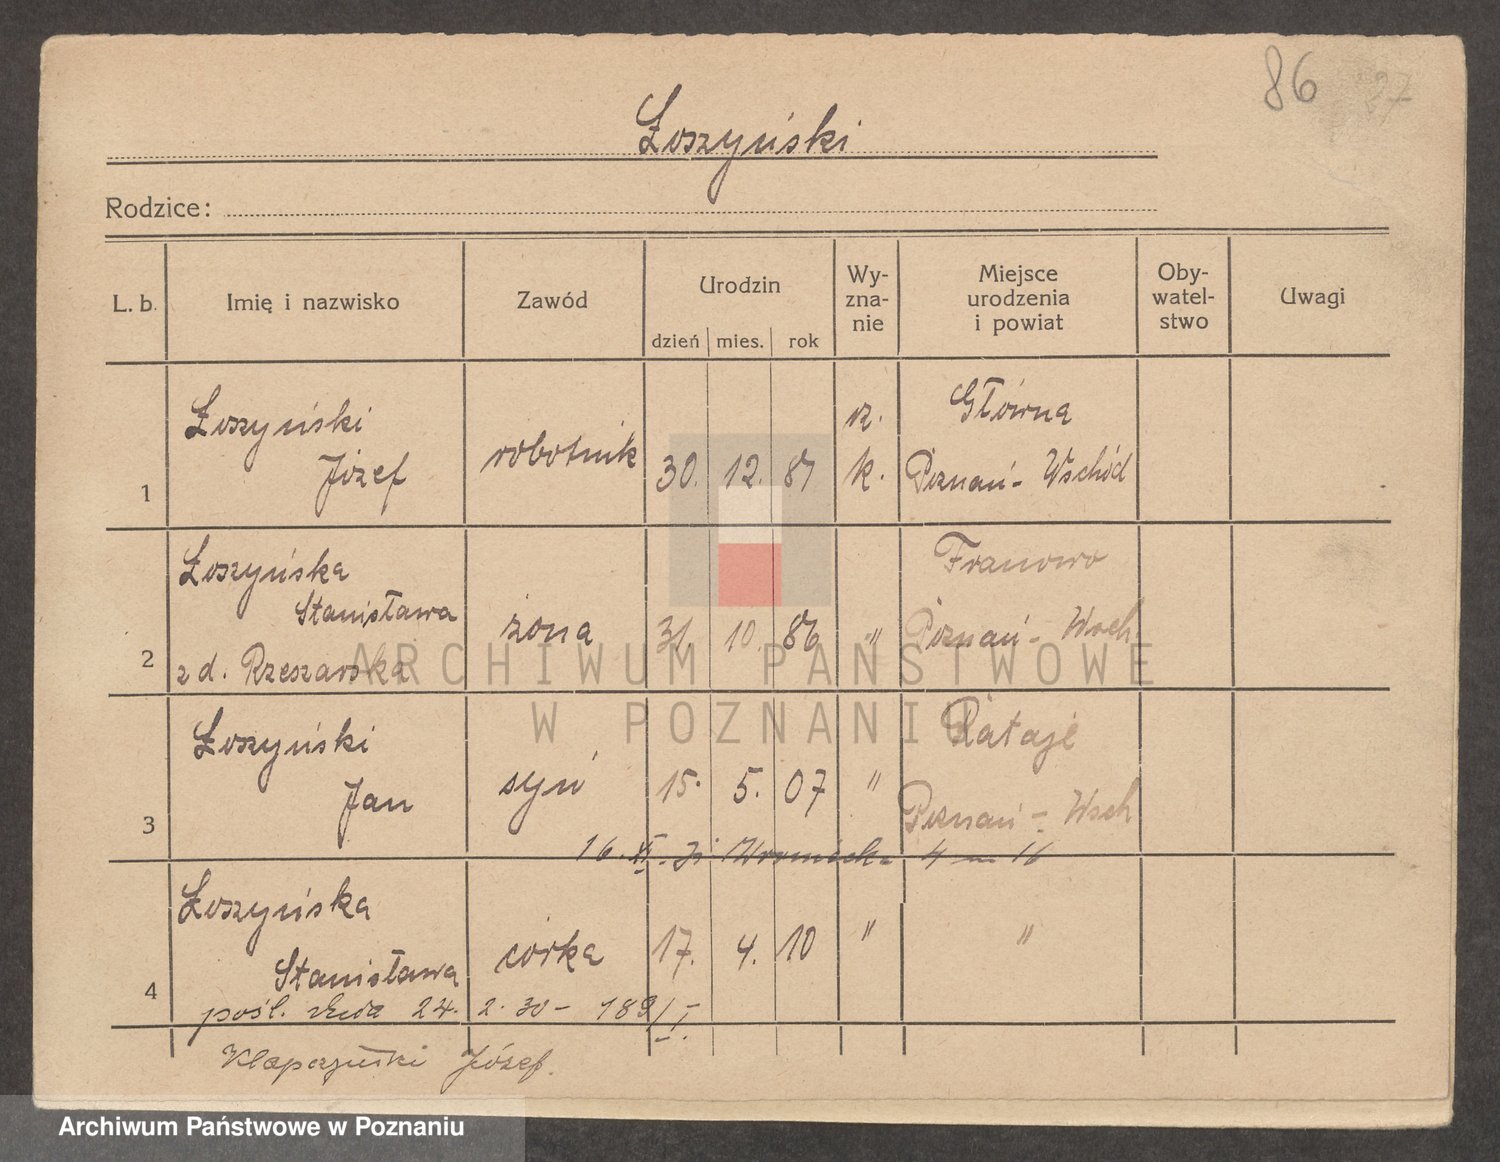 86
Łoszyński
Rodzice:
L. b.
Imię i nazwisko
Zawód
Urodzin
dzień mies. rok
Wy-
zna-
nie
Miejsce
urodzenia
i powiat
Oby-
watel-
stwo
Uwagi
Łoszyński
Józef
robotnik
30. 12. 87
rz.
k.
Główna
Poznań - Wschód
1
Łoszyńska
Stanisława
z d. Rzeszarska
żona
31. 10. 86
"
Franowo
Poznań - Wsch.
2
Łoszyński
Jan
syn
15. 5. 07
"
Rataje
Poznań - Wsch
3
16. XI. 4 m 16
Łoszyńska
Stanisława
córka
17. 4. 10
"
"
4
pośl. dnia 24. 2. 30 - 189/I.
Klapczyński Józef.
ARCHIWUM PAŃSTWOWE
W POZNANIU
Archiwum Państwowe w Poznaniu